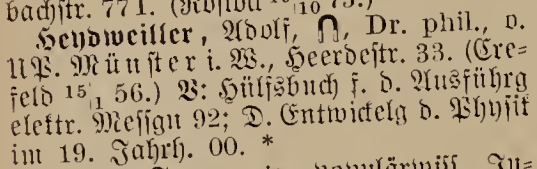 bachstr. 77 I.
Heydweiller, Adolf, Ո, Dr. phil., o.
UP. Münster i. W., Heerdestr. 33. (Cre=
feld 15|1 56.) V: Hülfsbuch f. d. Ausführg
elektr. Messgn 92; D. Entwickelg d. Physik
im 19. Jahrh. 00. *